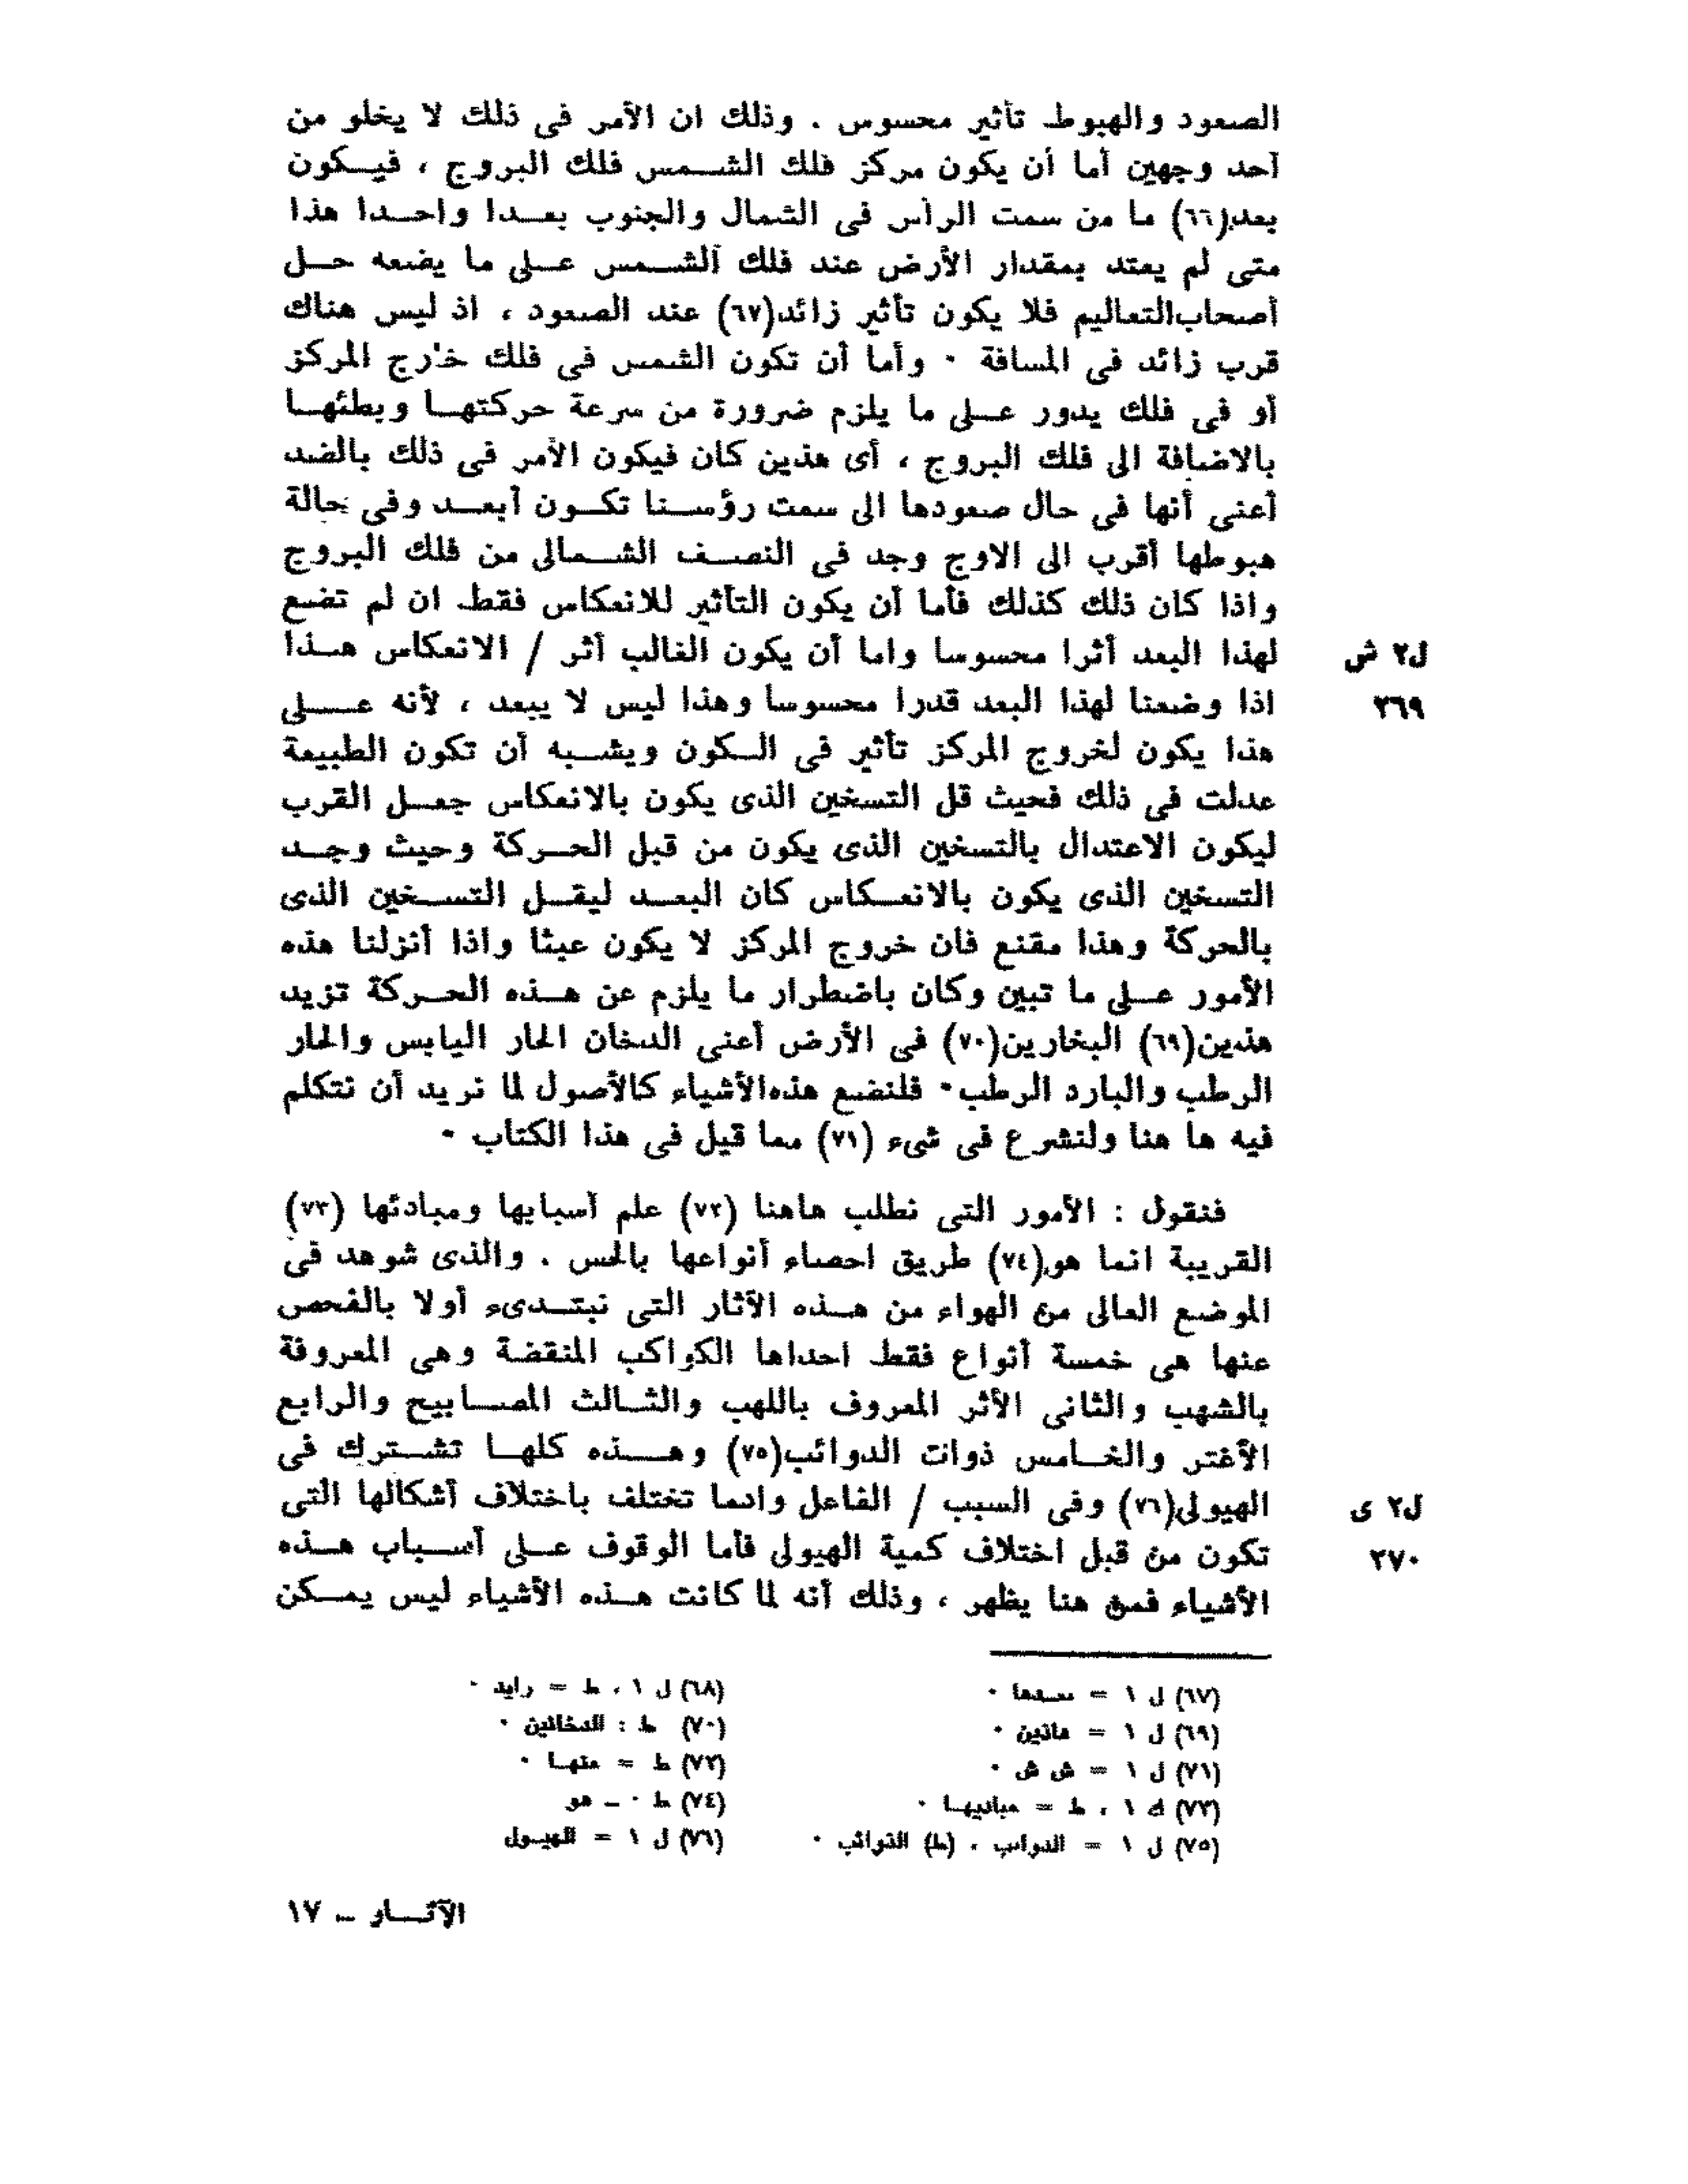 الصعود والهبوط تأثير محسوس . وذلك ان الأمر فى ذلك لا يخلو من
أحد وجهين أما أن يكون مركز فلك الشمس فلك البروج ، فيكون
بعد(٦٦) ما من سمت الرأس فى الشمال والجنوب بعدا واحدا هذا
متى لم يعتد بمقدار الأرض عند فلك الشمس على ما يضعه حل
أصحاب التعاليم فلا يكون تأثير زائد(٦٧) عند الصعود ، اذ ليس هناك
قرب زائد فى المسافة ٠ وأما أن تكون الشمس فى فلك خارج المركز
أو فى فلك يدور على ما يلزم ضرورة من سرعة حركتها وبطئها
بالاضافة الى فلك البروج ، أى هذين كان فيكون الأمر فى ذلك بالضد
أعنى أنها فى حال صعودها الى سمت رؤسنا تكون أبعد وفى حالة
هبوطها أقرب الى الاوج وجد فى النصف الشمالى من فلك البروج
واذا كان ذلك كذلك فأما أن يكون التأثير للانعكاس فقط ان لم تضع
لهذا البعد أثرا محسوسا واما أن يكون الغالب أثر / الانعكاس هذا
ل٢ ش
اذا وضعنا لهذا البعد قدرا محسوسا وهذا ليس لا يبعد ، لأنه على
٣٦٩
هذا يكون لخروج المركز تأثير فى الكون ويشبه أن تكون الطبيعة
عدلت فى ذلك فحيث قل التسخين الذى يكون بالانعكاس جعل القرب
ليكون الاعتدال بالتسخين الذى يكون من قبل الحركة وحيث وجد
التسخين الذى يكون بالانعكاس كان البعد ليقل التسخين الذى
بالحركة وهذا مقنع فان خروج المركز لا يكون عبثا واذا أنزلنا هذه
الأمور على ما تبين وكان باضطرار ما يلزم عن هذه الحركة تزيد
هذين(٦٩) البخارين(٧٠) فى الأرض أعنى الدخان الحار اليابس والحار
الرطب والبارد الرطب٠ فلنضع هذه الأشياء كالأصول لما نريد أن نتكلم
فيه ها هنا ولنشرع فى شىء (٧١) مما قيل فى هذا الكتاب ٠
فنقول : الأمور التى نطلب هاهنا (٧٢) علم أسبابها ومبادئها (٧٣)
القريبة انما هو(٧٤) طريق احصاء أنواعها بالحس . والذى شوهد فى
الموضع العالى من الهواء من هذه الآثار التى نبتدىء أولا بالفحص
عنها هى خمسة أنواع فقط احداها الكواكب المنقضة وهى المعروفة
بالشهب والثانى الأثر المعروف باللهب والثالث المصابيح والرابع
الأغتر والخامس ذوات الدوائب(٧٥) وهذه كلها تشترك فى
الهيولى(٧٦) وفى السبب / الفاعل وانما تختلف باختلاف أشكالها التى
ل٢ ى
تكون من قبل اختلاف كمية الهيولى فأما الوقوف على أسباب هذه
٢٧٠
الأشياء فمن هنا يظهر ، وذلك أنه لما كانت هذه الأشياء ليس يمكن
(٦٧) ل ١ = ٠
(٦٨) ل ١ ، ط = رايد ٠
(٦٩) ل ١ = هاذين ٠
(٧٠) ط : الدخانين ٠
(٧١) ل ١ = ش ش ٠
(٧٢) ط = منها ٠
(٧٣) ل ١ ، ط = مباديها ٠
(٧٤) ط ٠ ـ هو
(٧٥) ل ١ = الدواىب ، (ط) الذوائب ٠
(٧٦) ل ١ = الهيول
الآثار ــ ١٧